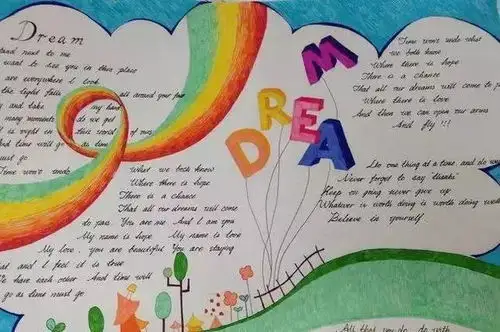 Dream
and next to me
want to see you in this place
are everywhere I look
the light falls all around your face
and take my hand
many moments do we get
is right in this world of ours
and time will go as time
must go
Time won't undo
What we both know
Where there is hope
There is a chance
That all our dreams will come
to pass You are me And I am you
My name is hope My name is love
My love, you are beautiful You are staying
and I feel it is true
We have each other And time will
go as time must go
DREAM
Time won't undo what
we both know
Where there is hope
There is a chance
That all our dreams will come to
Where there is love
And then we can open our arms
And fly !!!
Do one thing at a time, and do
Never forget to say
Keep on going never give up
Whatever is worth doing is worth doing
Believe in yourself.
All that you do, do with